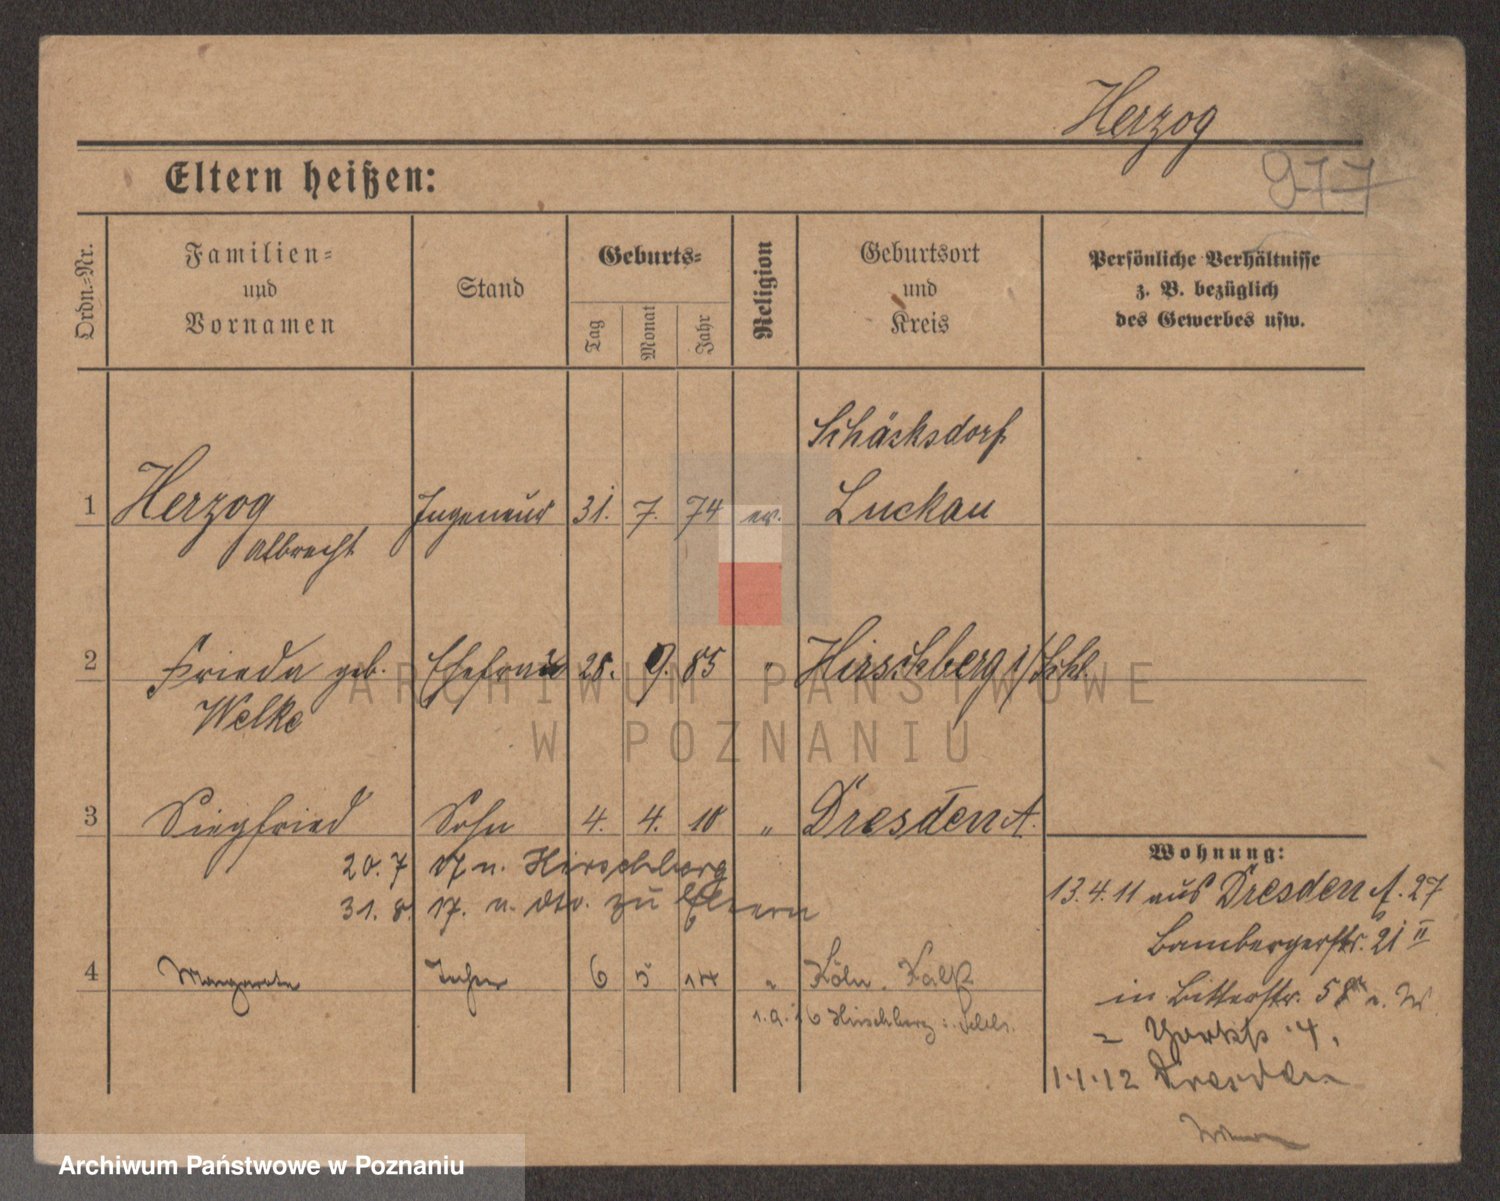 Herzog
977
Eltern heißen:
Ordn.=Nr.
Familien=
und
Vornamen
Stand
Geburts=
Tag
Monat
Jahr
Religion
Geburtsort
und
Kreis
Persönliche Verhältnisse
z. B. bezüglich
des Gewerbes usw.
Schäcksdorf
1 Herzog Ingeneur 31. 7. 74 ev. Luckau
Albrecht
2 Frieda geb. Ehefrau 28. 9. 85 " Hirschberg i/Schl.
Welke
3 Siegfried Sohn 4. 4. 10 " Dresden A.
20. 7 17 n. Hirschberg
31. 8. 17. n. dto. zu Eltern
Wohnung:
13.4.11 aus Dresden A. 27
Bambergerstr. 21 II
4 Margarete 6 5 14 " Köln. Kalk
in Bitterstr. 58
1.9.16 Hirschberg i. Schls.
= Yorkstr. 4.
1.1.12 Dresden
ARCHIWUM PAŃSTWOWE
W POZNANIU
Archiwum Państwowe w Poznaniu